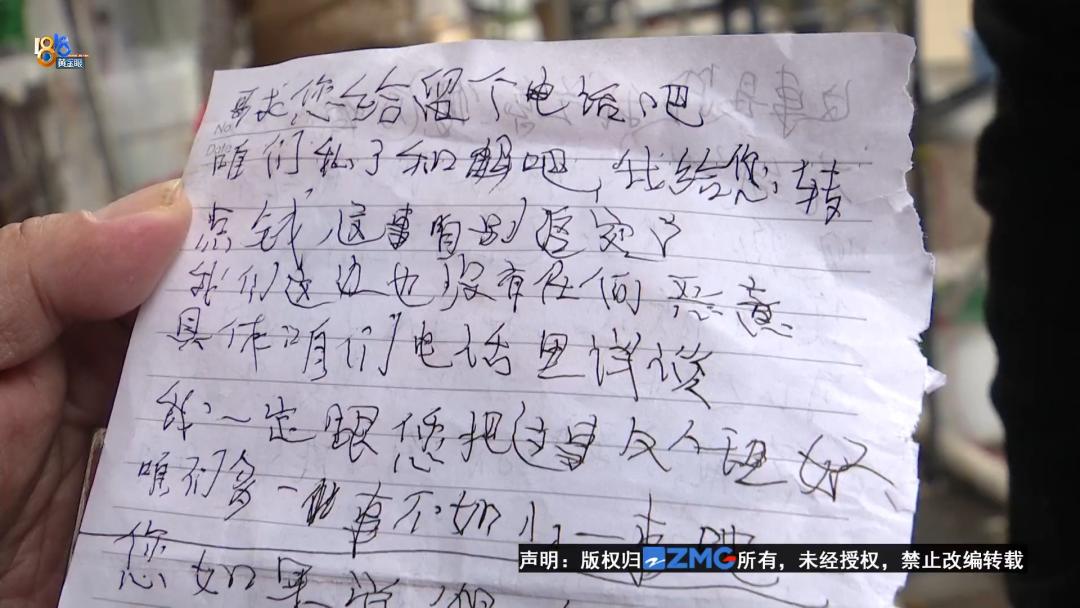 1818
黄金眼
No.
Date
求您给留个电话吧
咱们私了和解吧,我给您转
点钱,这事咱别追究了
我们这边也没有任何恶意
具体咱们电话里详谈
我一定跟您把这事处理好、
咱们多一事不如少一事吧
您如果觉得
声明:版权归ZMG所有,未经授权,禁止改编转载